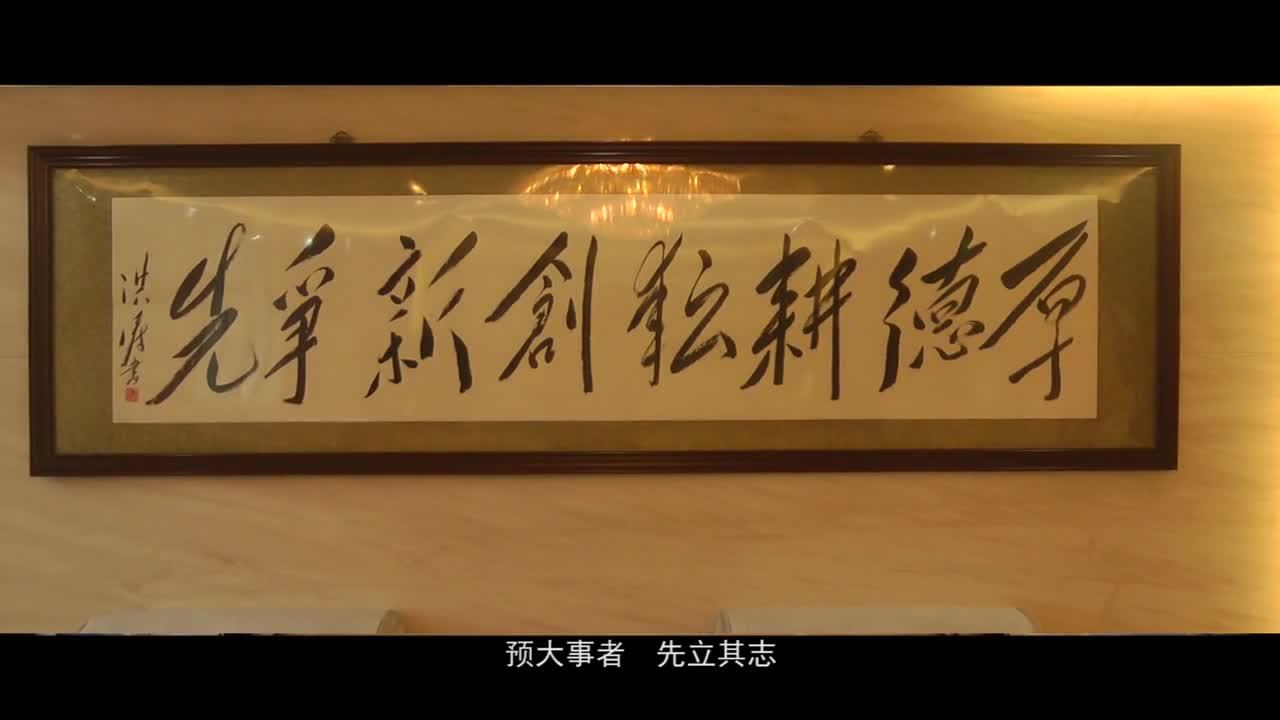 厚德耕耘創新爭先
预大事者　先立其志